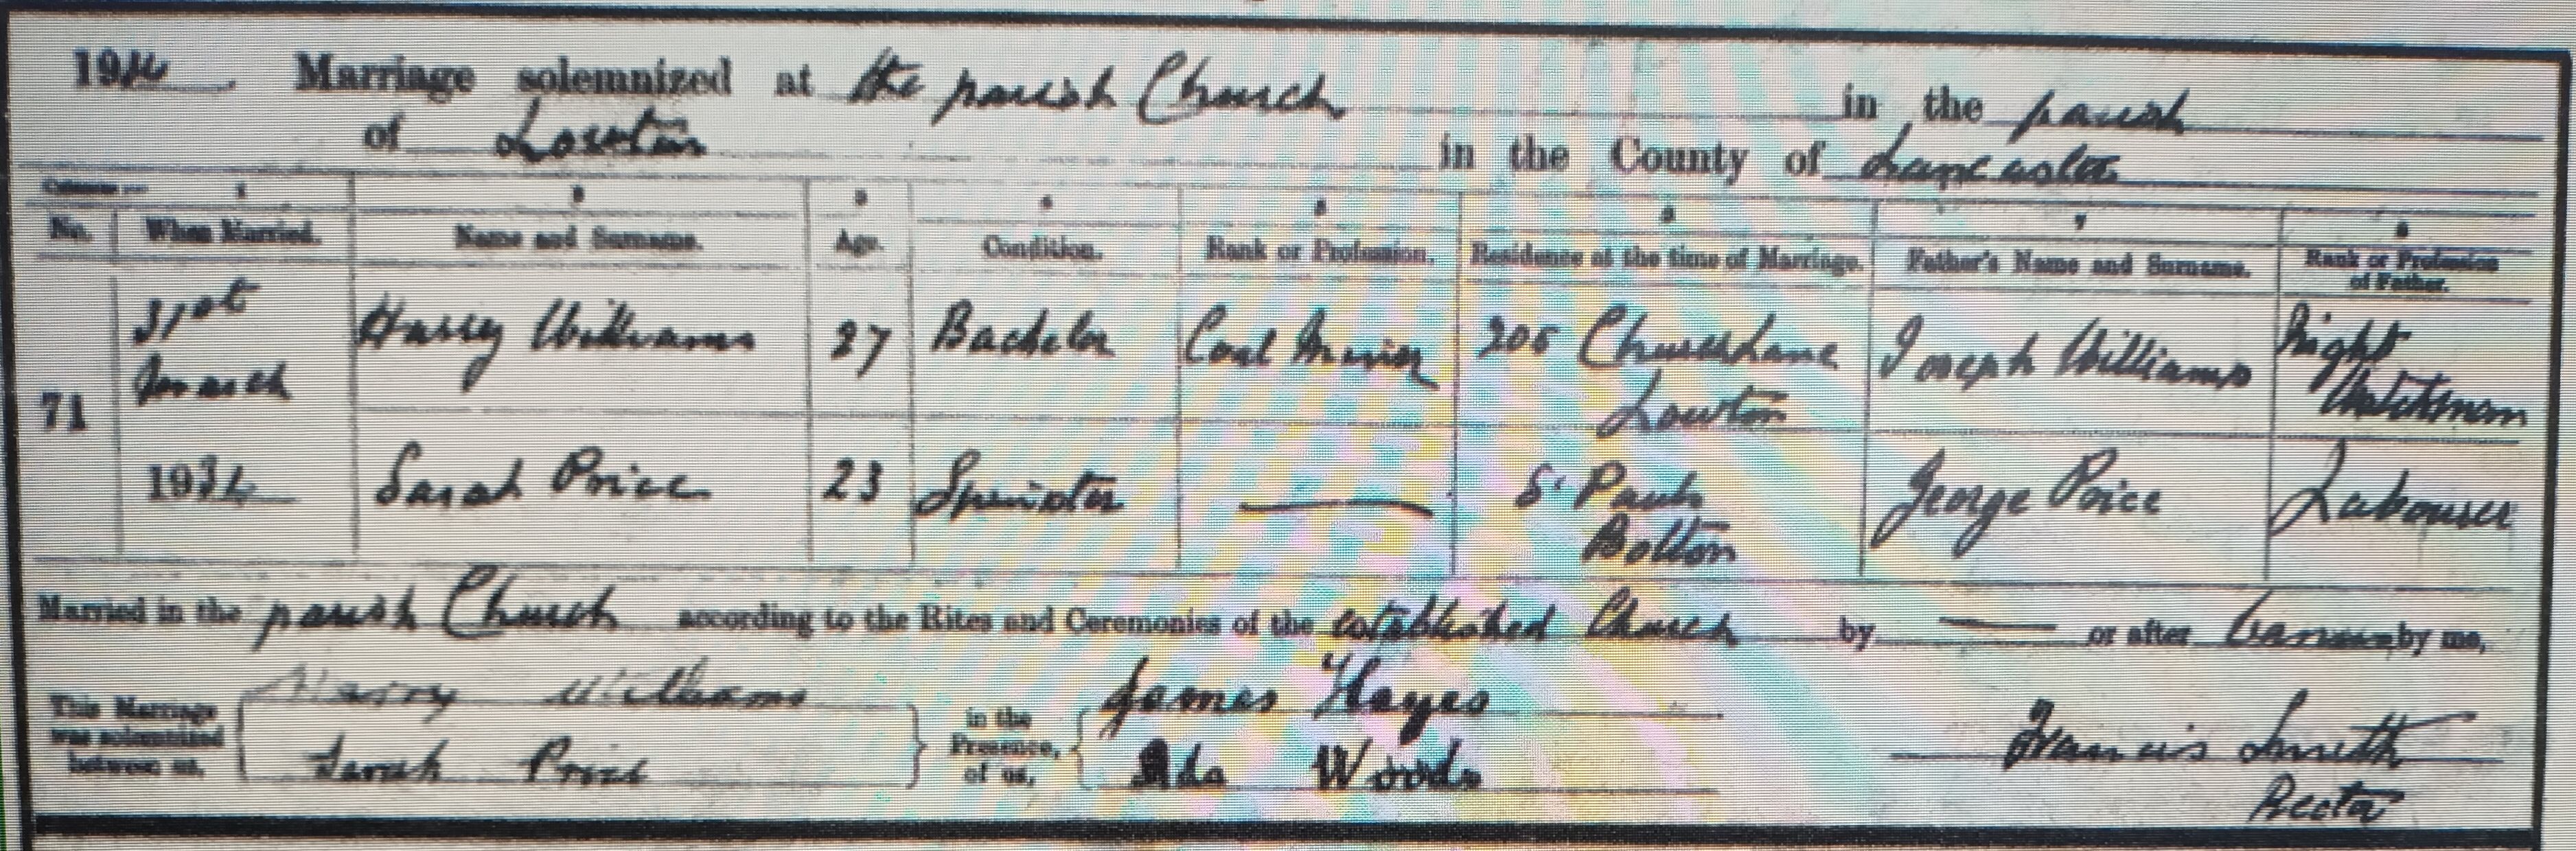 1934 Marriage solemnized at the parish Church in the parish
of Lowton in the County of Lancaster
Columns:— 1 2 3 4 5 6 7 8
No. When Married. Name and Surname. Age. Condition. Rank or Profession. Residence at the time of Marriage. Father's Name and Surname. Rank or Profession of Father.
71 31st March 1934
Harry Williams 27 Bachelor Coal Miner 206 Church Lane Lowton Joseph Williams Night Watchman
Sarah Price 23 Spinster — St Pauls Bolton George Price Labourer
Married in the parish Church according to the Rites and Ceremonies of the established Church by — or after banns by me,
This Marriage was solemnized between us, Harry Williams
Sarah Price
in the Presence of us, James Hayes
Ada Woods
Francis Smith
Rector